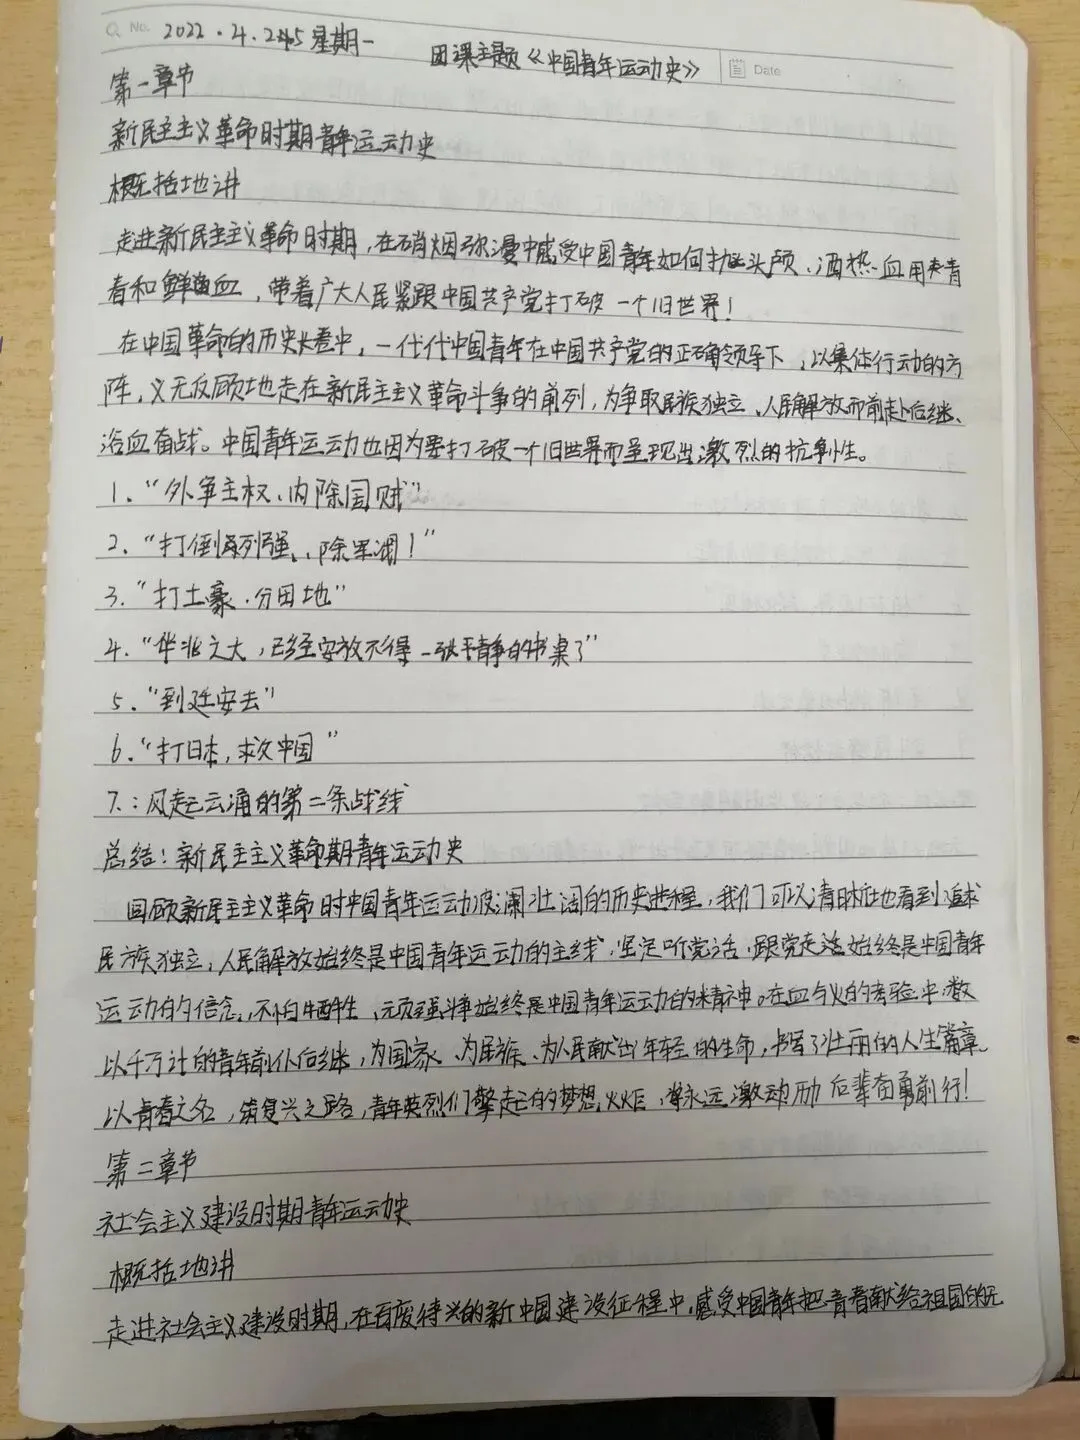 No. 2022.4.25 星期一 团课主题《中国青年运动史》 Date
第一章节
新民主主义革命时期青年运动史
概括地讲
走进新民主主义革命时期,在硝烟弥漫中感受中国青年如何抛头颅、洒热血用青
春和鲜血,带着广大人民紧跟中国共产党打破一个旧世界!
在中国革命的历史长卷中,一代代中国青年在中国共产党的正确领导下,以集体行动的方
阵,义无反顾地走在新民主主义革命斗争的前列,为争取民族独立、人民解放而前赴后继、
浴血奋战。中国青年运动也因为要打破一个旧世界而呈现出激烈的抗争性。
1.“外争主权、内除国贼”
2.“打倒列强、除军阀!”
3.“打土豪.分田地”
4.“华北之大,已经安放不得一张平静的书桌了”
5.“到延安去”
6.“打日本,救中国”
7.:风起云涌的第二条战线
总结:新民主主义革命期青年运动史
回顾新民主主义革命时中国青年运动波澜壮阔的历史进程,我们可以清晰地看到追求
民族独立,人民解放始终是中国青年运动的主线,坚定听党话、跟党走始终是中国青年
运动的信念,不怕牺牲、顽强斗争始终是中国青年运动的精神。在血与火的考验中,数
以千万计的青年前仆后继,为国家、为民族、为人民献出年轻的生命,书写了壮丽的人生篇章。
以青春之名,筑复兴之路,青年英烈们擎起的梦想火炬,将永远激动励后辈奋勇前行!
第二章节
社会主义建设时期青年运动史
概括地讲
走进社会主义建设时期,在百废待兴的新中国建设征程中,感受中国青年把青春献给祖国的